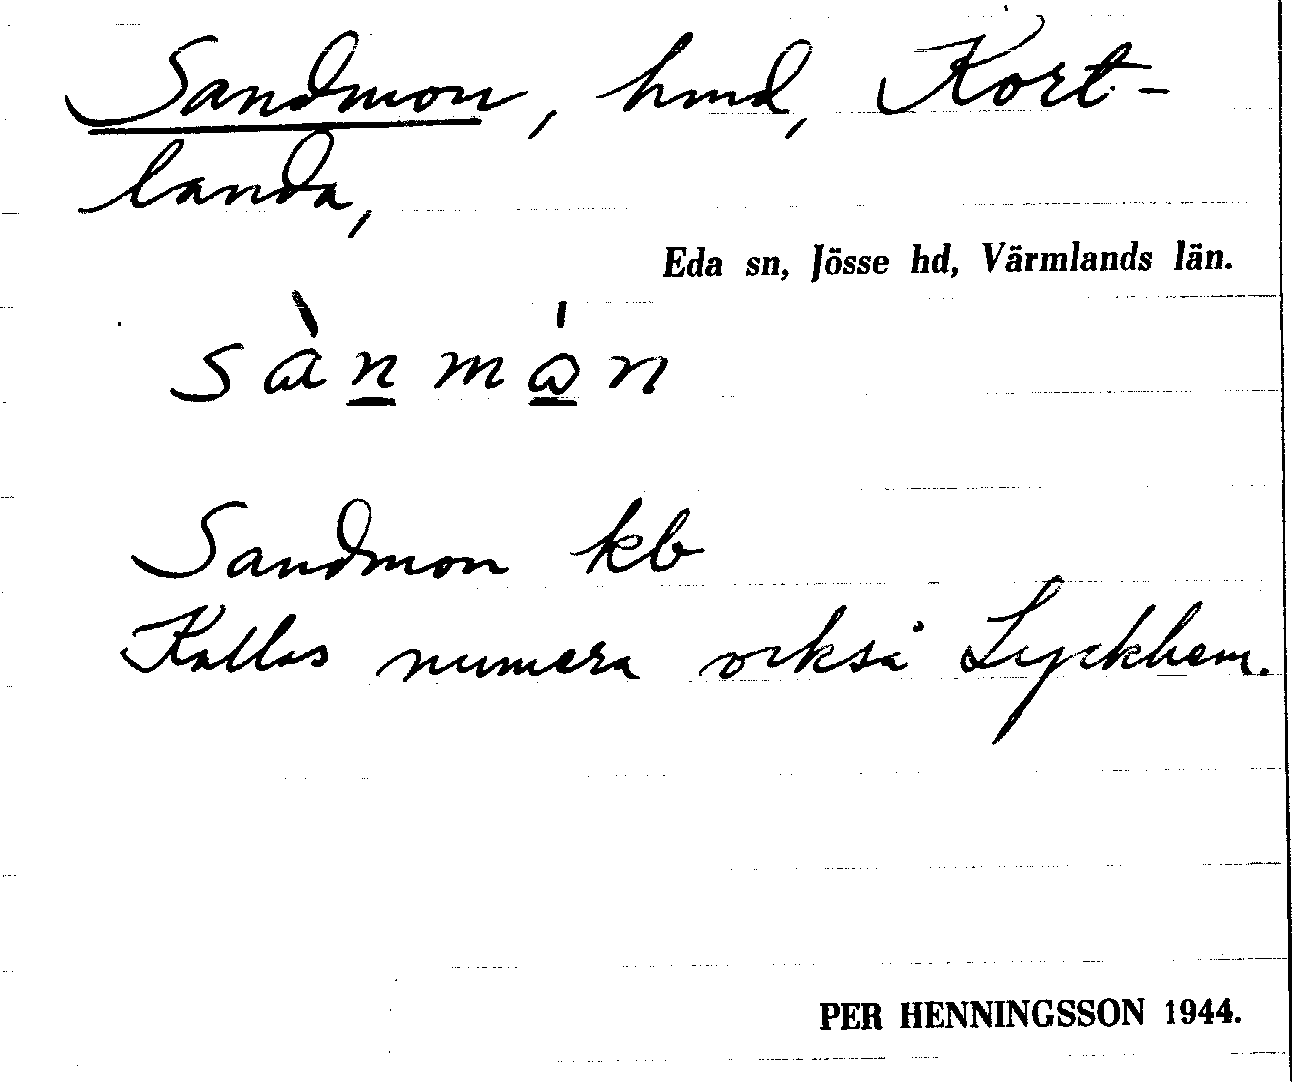 Sandmon, hmd, Kort-
landa,
Eda sn, Jösse hd, Värmlands län.
sànmón
Sandmon kb
Kallas numera också Lyckhem.
PER HENNINGSSON 1944.